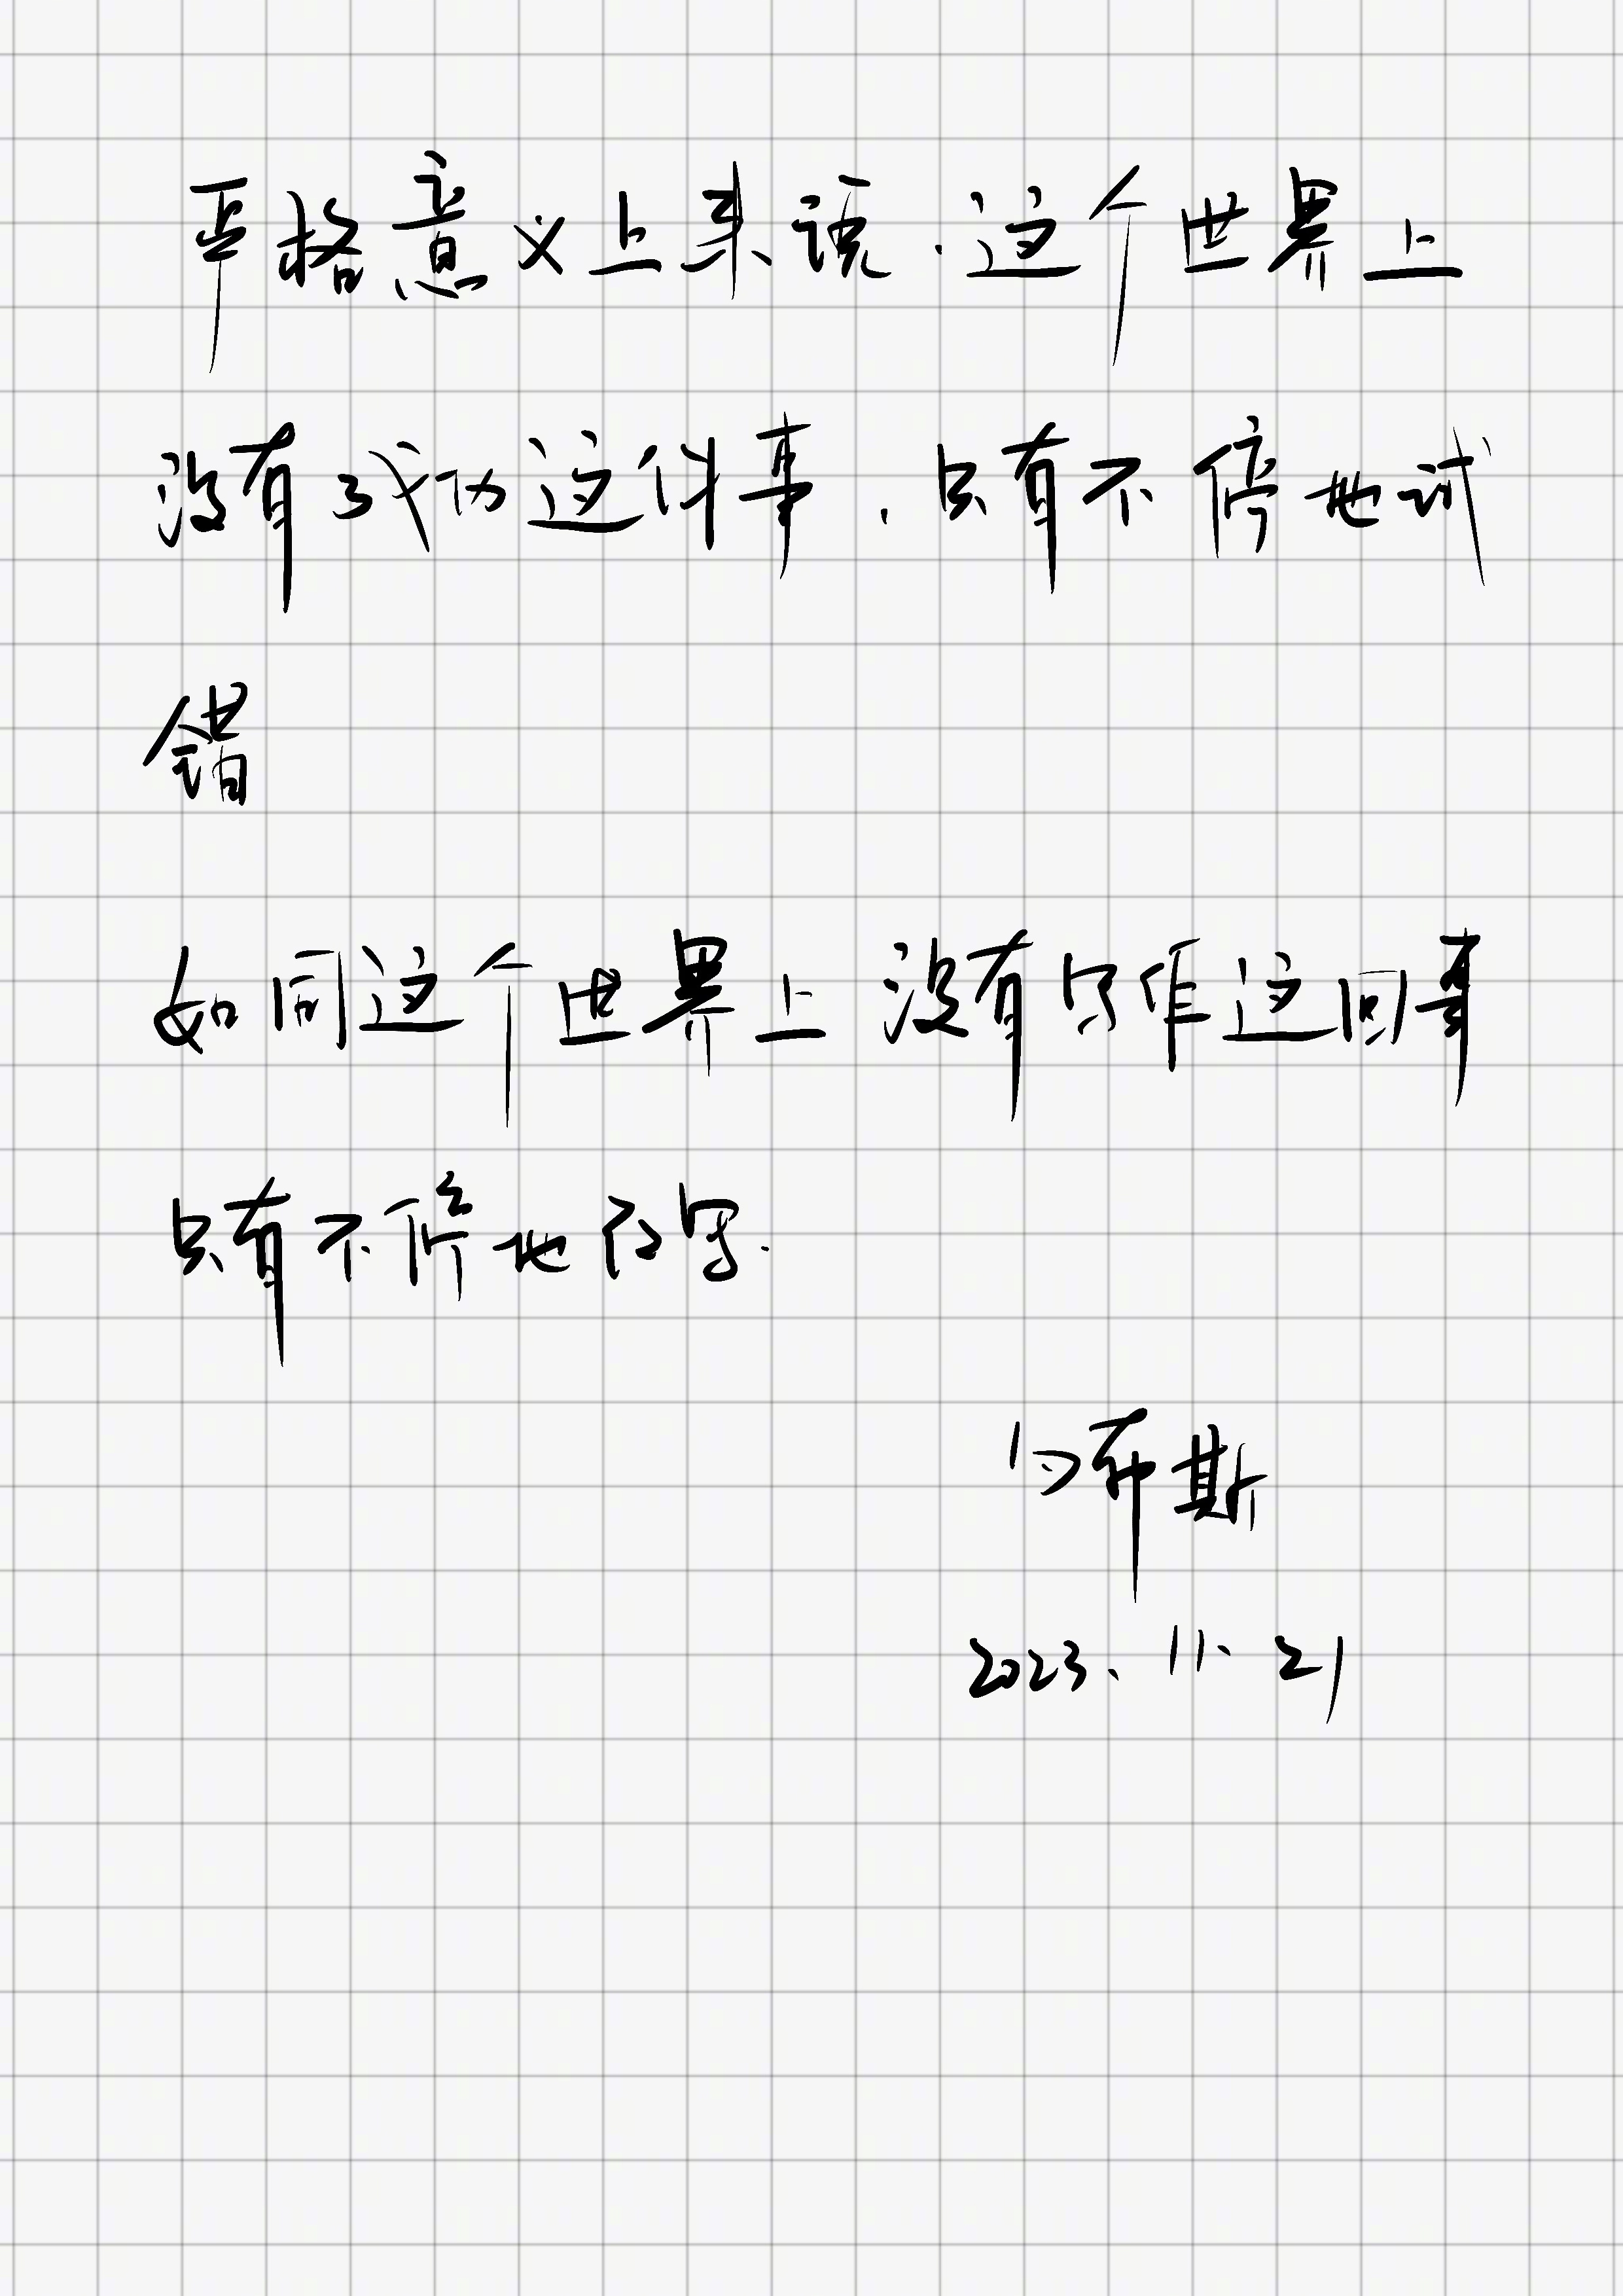 严格意义上来说.这个世界上
没有成功这件事.只有不停地试
错
如同这个世界上没有写作这回事
只有不停地改写.
布斯
2023.11.21